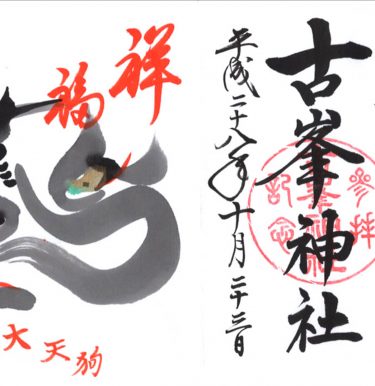 古峯神社
参拝
記念
平成二十八年十月二十三日
祥
福
大天狗